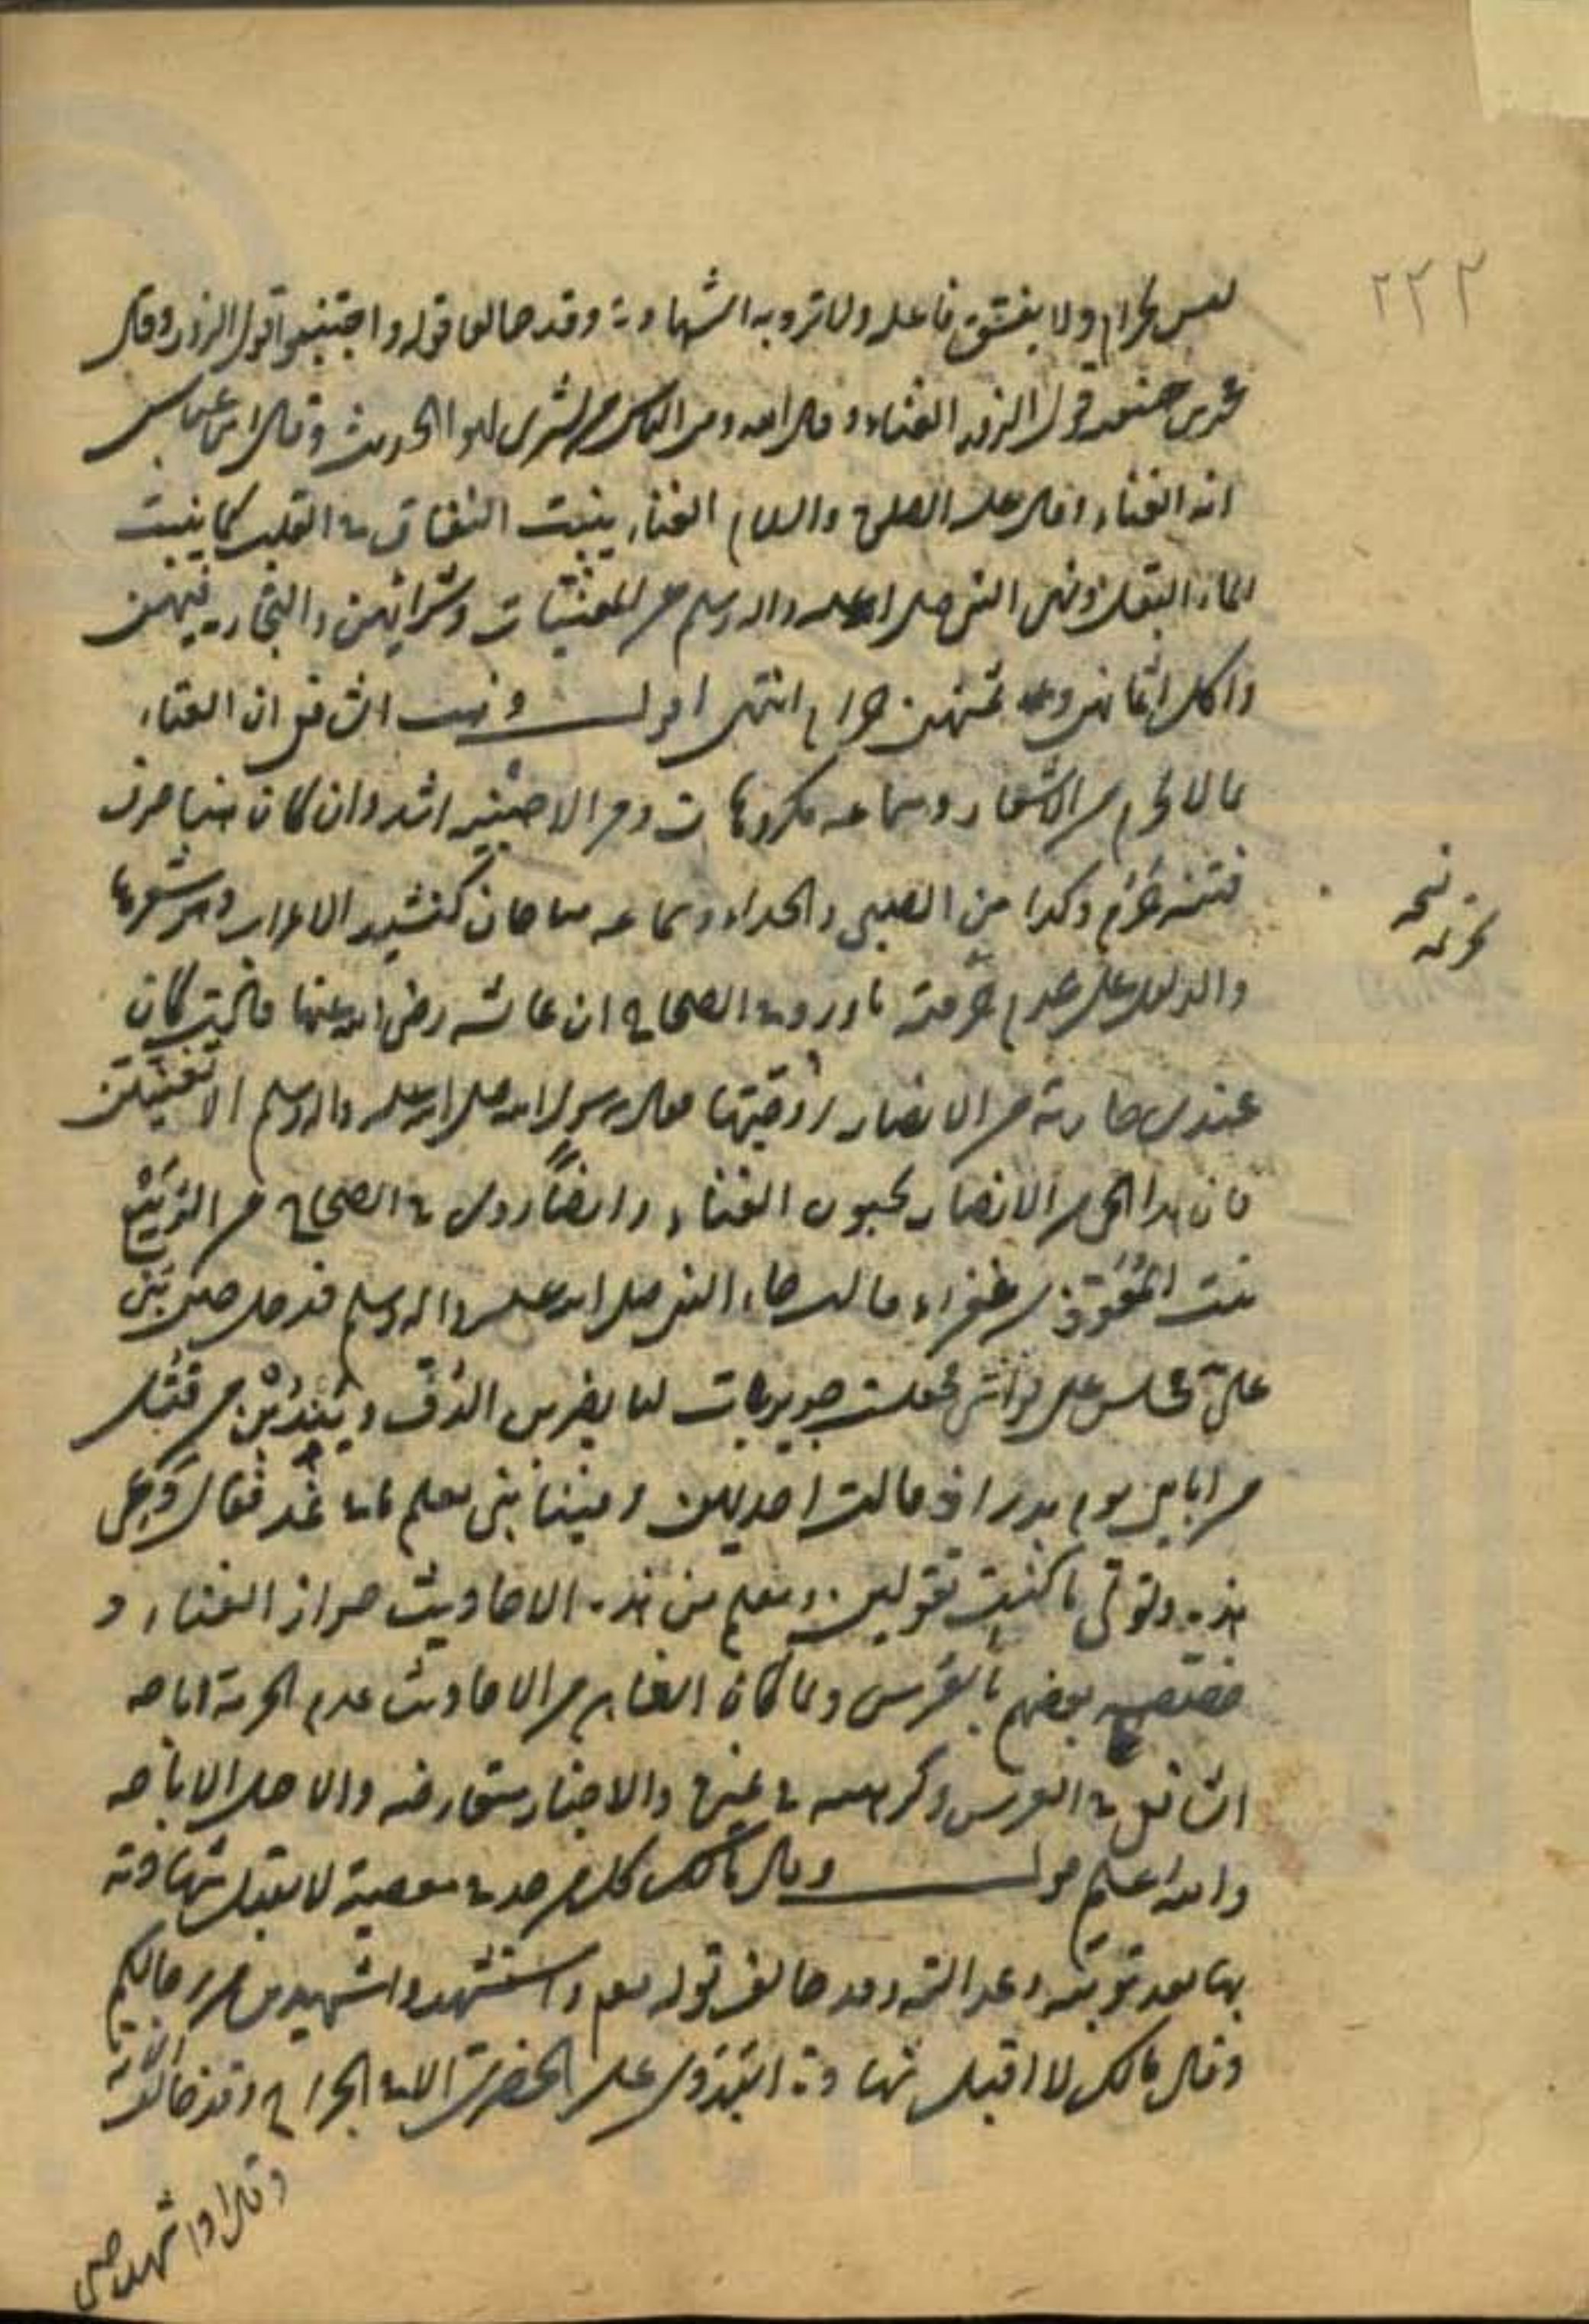 ٢٢٢
ليس بحرام ولا يفسق فاعله ولا ترد به الشهادة وقد خالفا قوله واجتنبوا قول الزور وقال
محمد بن حنفية قول الزور الغناء وقال الله ومن الناس من يشتري لهو الحديث وقال ابن عباس
انه الغناء وقال عليه الصلوة والسلام الغناء ينبت النفاق في القلب كما ينبت
الماء البقل ونهى النبي صلى الله عليه واله وسلم عن المغنيات وشرائهن والتجارة فيهن
واكل اثمانهن وثمنهن حرام انتهى اقول مذهب الشافعي ان الغناء
بما لا يحرم من الاشعار وسماعه مكروهان ومن الاجنبية اشد وان كان فيها خوف
فتنة حرم وكذا من الصبي والحداء وسماعه مباحان كنشيد الاعراب
والدليل على عدم حرمته ما ورد في الصحاح ان عائشة رضي الله عنها قالت كان
عندي جارية من الانصار زوجتها فقال رسول الله صلى الله عليه واله وسلم الا تغنين
فان هذا الحي من الانصار يحبون الغناء وايضا روي في الصحاح عن الربيع
بنت المعوذ بن عفراء قالت جاء النبي صلى الله عليه واله وسلم فدخل حين بني
علي فجلس على فراشي فجعلت جويريات لنا يضربن الدف ويندبن من قتل
من ابائي يوم بدر اذ قالت احديهن وفينا نبي يعلم ما في غد فقال دعي
هذه وقولي ما كنت تقولين ويعلم من هذه الاحاديث جواز الغناء و
خصصه بعضهم بالعرس ولما كان الظاهر من الاحاديث عدم الحرمة اباحه
الشافعي في العرس وكرهه في غيره والاخبار متعارضة والاصل الاباحة
والله اعلم قوله وقال مالك كل من حد في معصية لا يقبل شهادته
بها بعد توبته وعدالته وقد خالف قوله تعالى واستشهدوا شهيدين من رجالكم
وقال مالك لا اقبل شهادة البدوي على الحضري الا في الجراح وقد خالف الآية
وقال اواشهد صبي
نسخة
تحريمه